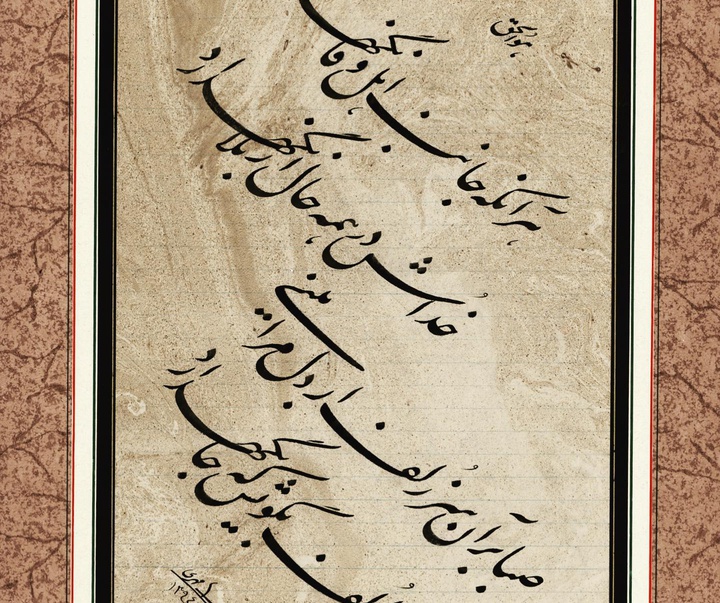 هوالحق
هر آنکه جانب اهل وفا نگهد
خداش در همه حال از بلا نگهدارد
صبا بر آن سر زلف ار دل مرا بینی
لطف بگویش که جا نگهدارد
۱۳۹۴